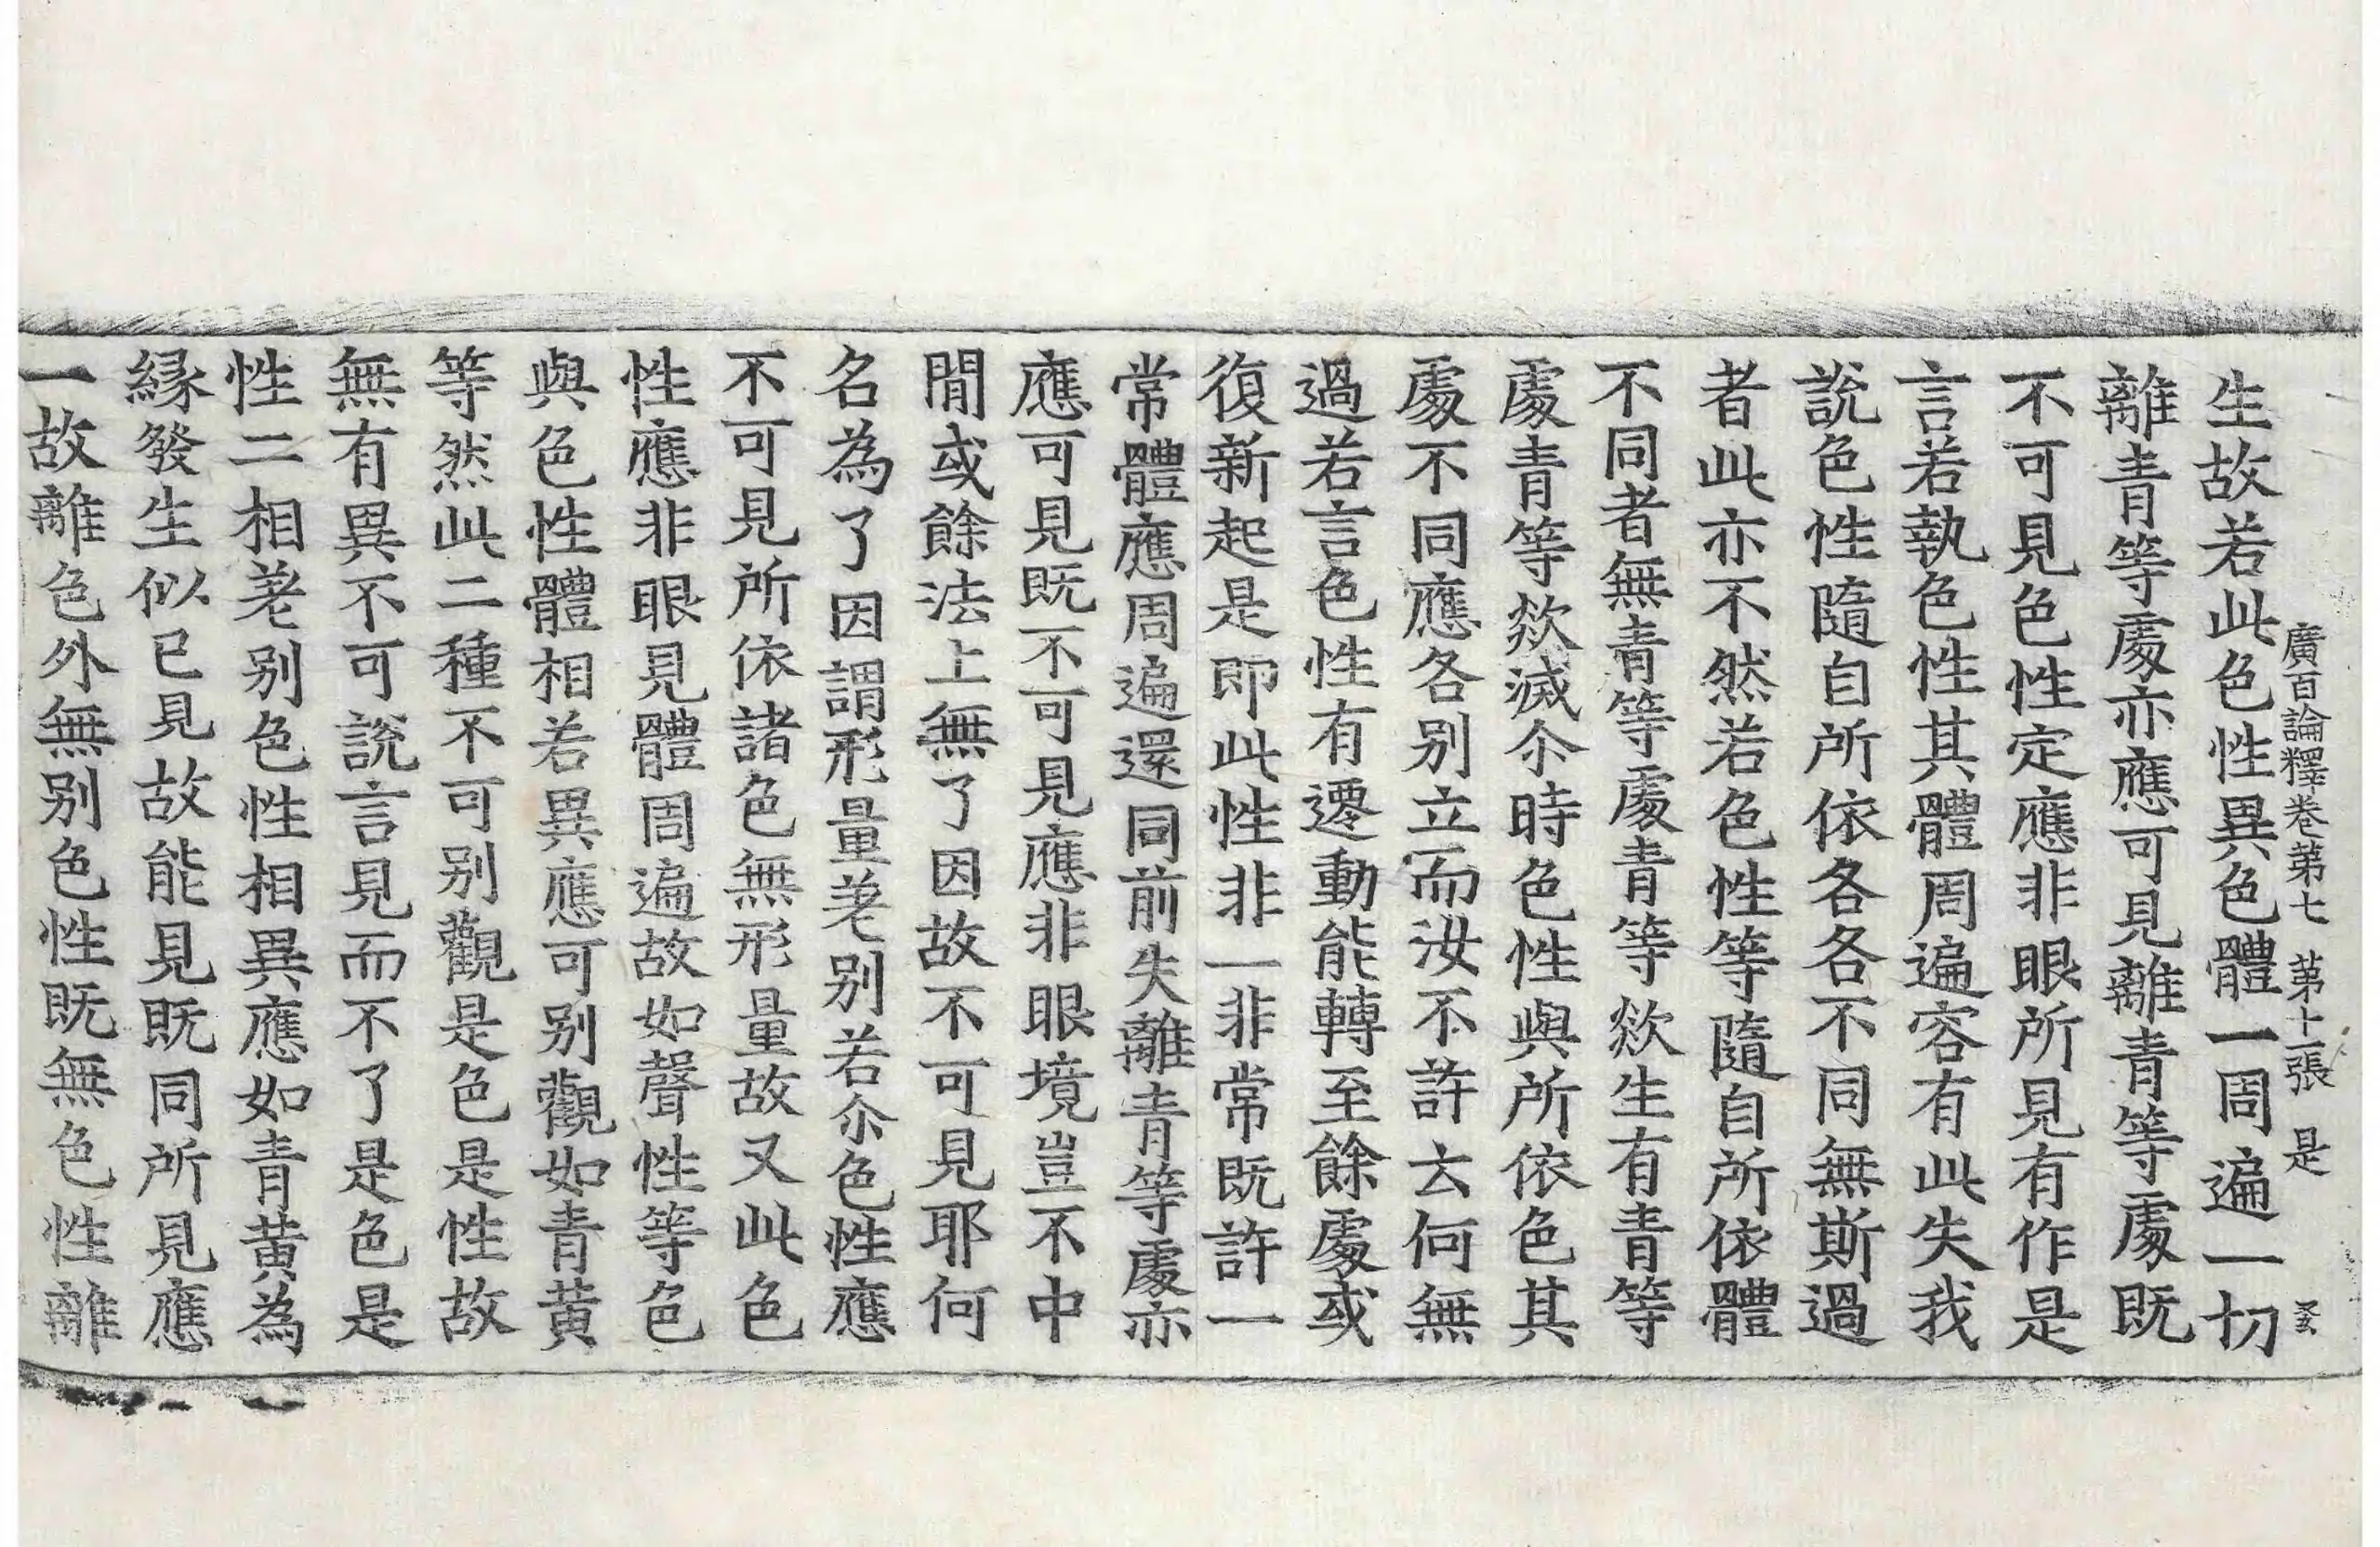 廣百論釋卷第七 第十一張 是
生故若此色性異色體一周遍一切
離青等處亦應可見離青等處既
不可見色性定應非眼所見有作是
言若執色性其體周遍容有此失我
說色性隨自所依各各不同無斯過
者此亦不然若色性等隨自所依體
不同者無青等處青等欻生有青等
處青等欻滅尒時色性與所依色其
處不同應各別立而汝不許云何無
過若言色性有遷動能轉至餘處或
復新起是即此性非一非常既許一
常體應周遍還同前失離青等處亦
應可見既不可見應非眼境豈不中
閒或餘法上無了因故不可見耶何
名為了因謂形量差別若尒色性應
不可見所依諸色無形量故又此色
性應非眼見體周遍故如聲性等色
與色性體相若異應可別觀如青黃
等然此二種不可別觀是色是性故
無有異不可說言見而不了是色是
性二相差別色性相異應如青黃為
緣發生似已見故能見既同所見應
一故離色外無別色性既無色性離